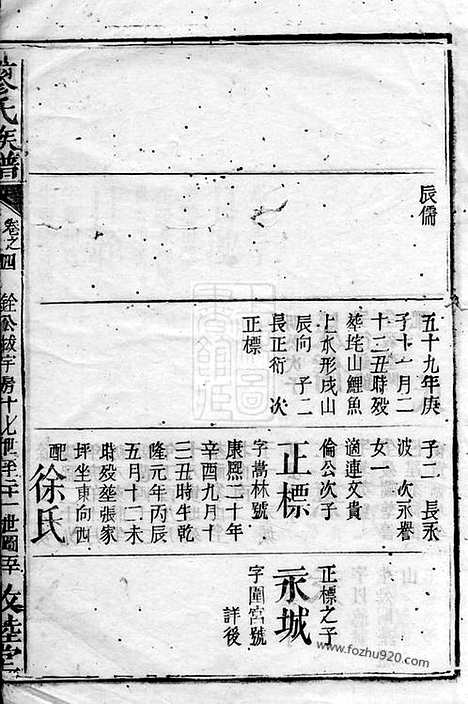 辰儒
五十九年庚
子十一月二
十二丑時殁
葬垞山鯉魚
上水形戌山
辰向 子二
長正衍 次
正標
子二 長永
波 次永譽
女一
適連文貴
倫公次子
正標
字嵩林號
康熙二十年
辛酉九月十
三丑時生乾
隆元年丙辰
五月十二未
時殁塟張家
坪坐東向西
配徐氏
正標之子
永城
字圍宮號
詳後
廖氏族譜
卷之四
銓公拔宇房十七世至二十一世圖
敦睦堂
www.fozhu920.com